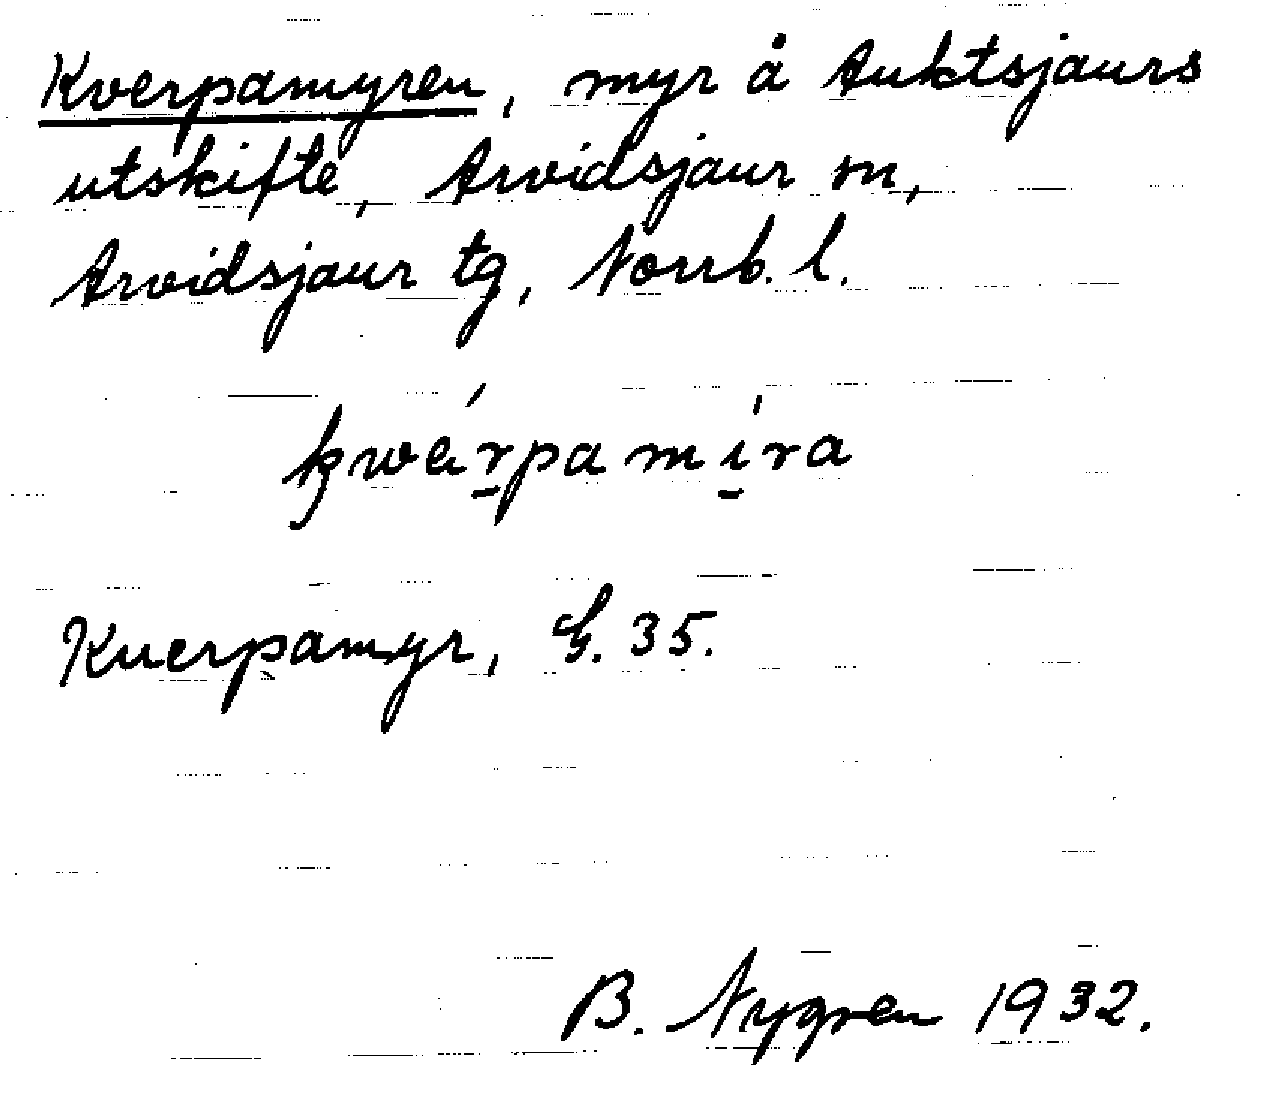 Kverpamyren, myr å Auktsjaurs
utskifte, Arvidsjaur sn,
Arvidsjaur tg, Norrb. l.
kwärpamira
Kuerpamyr, G. 35.
B. Nygren 1932.